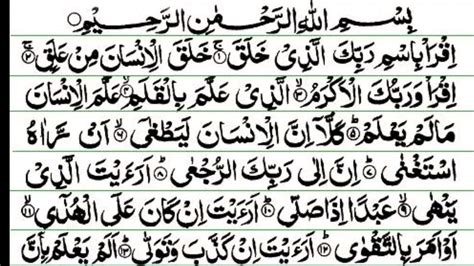 بِسْمِ اللهِ الرَّحْمٰنِ الرَّحِيْمِ
اِقْرَاْ بِاسْمِ رَبِّكَ الَّذِىْ خَلَقَ ۝۱ خَلَقَ الْاِنْسَانَ مِنْ عَلَقٍ ۝۲
اِقْرَاْ وَرَبُّكَ الْاَكْرَمُ ۝۳ الَّذِىْ عَلَّمَ بِالْقَلَمِ ۝۴ عَلَّمَ الْاِنْسَانَ
مَالَمْ يَعْلَمْ ۝۵ كَلَّآ اِنَّ الْاِنْسَانَ لَيَطْغٰى ۝۶ اَنْ رَّاٰهُ
اسْتَغْنٰى ۝۷ اِنَّ اِلٰى رَبِّكَ الرُّجْعٰى ۝۸ اَرَءَيْتَ الَّذِىْ
يَنْهٰى ۝۹ عَبْدًا اِذَا صَلّٰى ۝۱۰ اَرَءَيْتَ اِنْ كَانَ عَلَى الْهُدٰى ۝۱۱
اَوْ اَمَرَ بِالتَّقْوٰى ۝۱۲ اَرَءَيْتَ اِنْ كَذَّبَ وَتَوَلّٰى ۝۱۳ اَلَمْ يَعْلَمْ بِاَنَّ